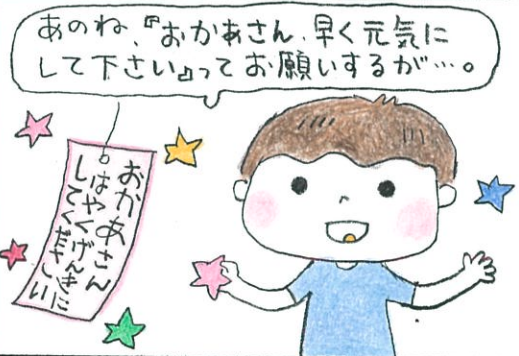 あのね、『おかあさん、早く元気に
して下さい』ってお願いするが…。
おかあさん
はやくげんきに
してください